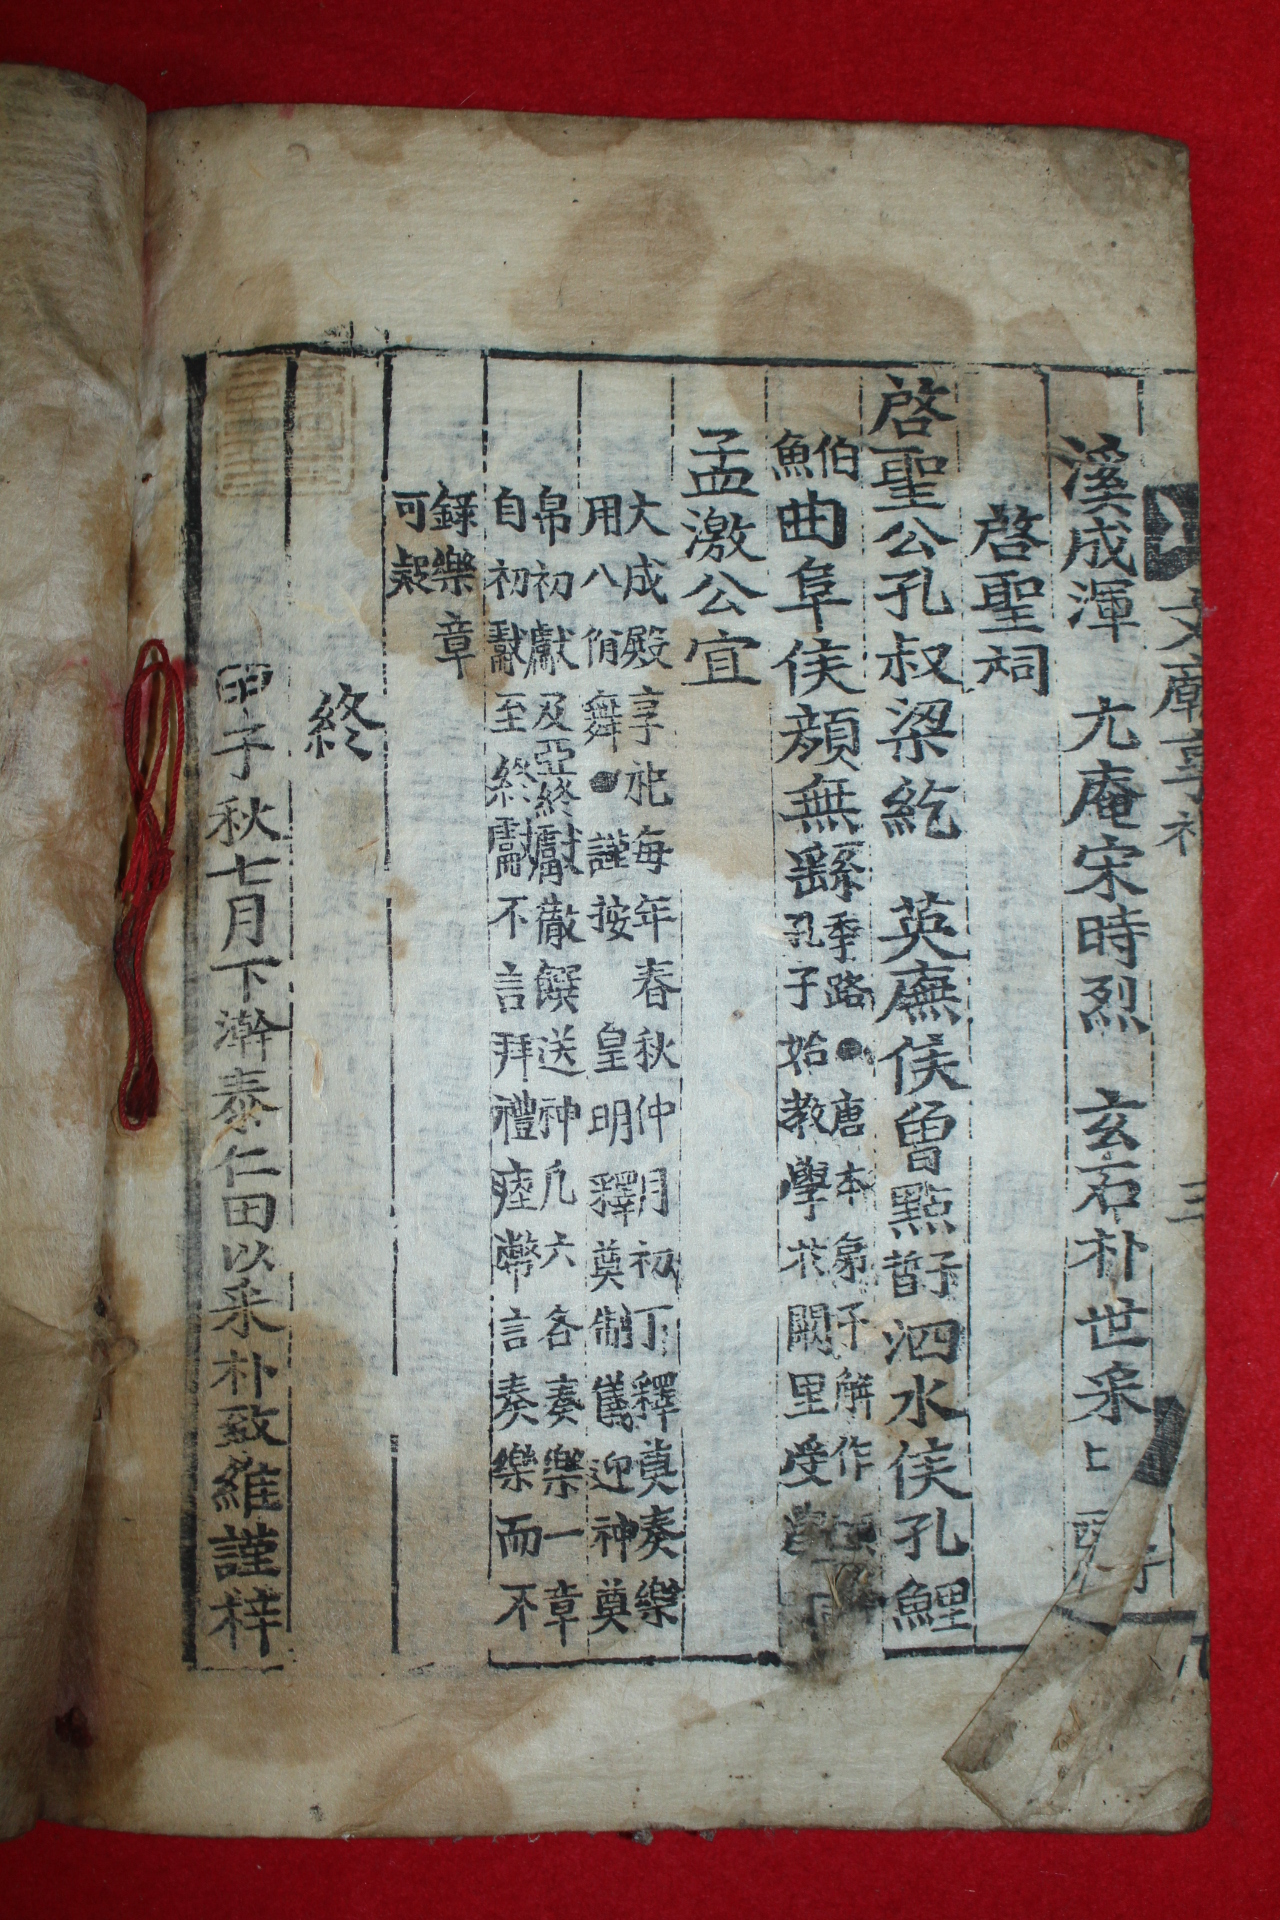 文廟享祀
三
溪成渾 尤庵宋時烈 玄石朴世采 上西
啓聖祠
啓聖公孔叔梁紇 英廡侯曾點晳子 泗水侯孔鯉
伯魚 曲阜侯顔無繇 季路●唐本弟子解作
孔子始教學於闕里受學
孟激公宜
大成殿享祀每年春秋仲月初丁釋奠奏樂
用八佾舞●謹按 皇明釋奠制儀迎神奠
帛初獻及亞終獻徹饌送神凡六各奏樂一章
自初獻至終獻不言拜禮瘞幣言奏樂而不
錄樂章
可疑
終
甲子秋七月下澣泰仁田以采朴致維謹梓